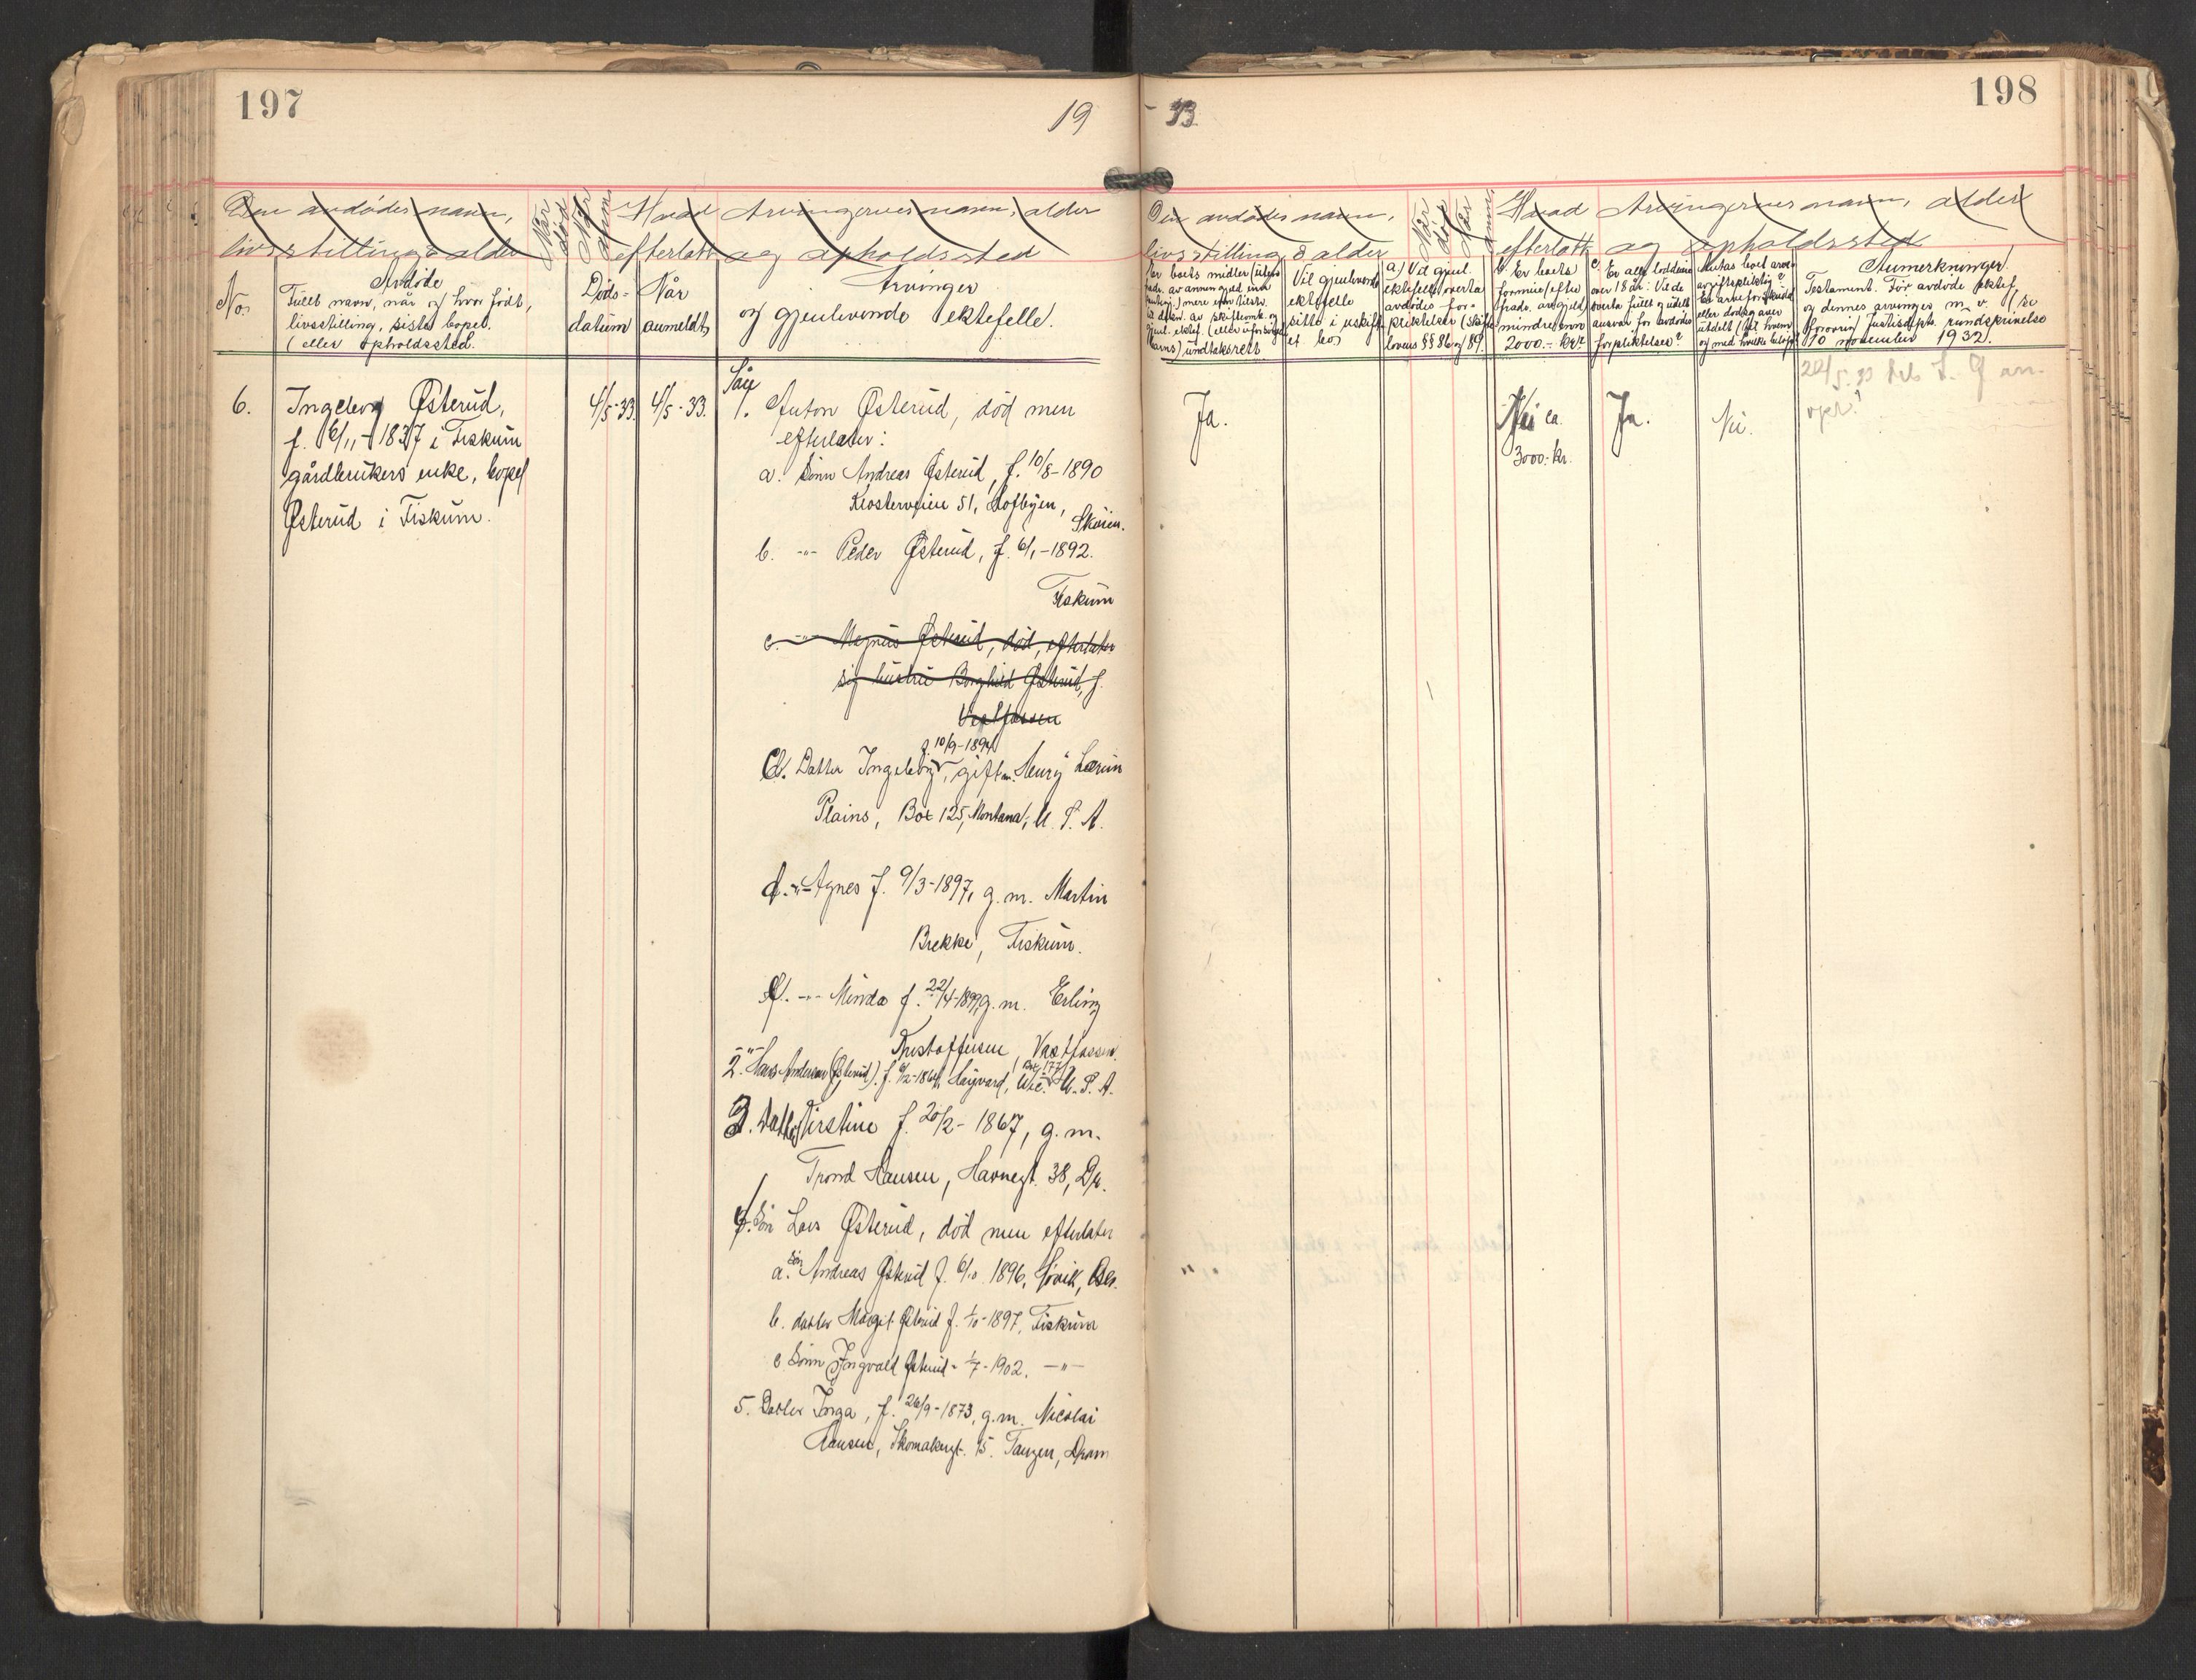 197
19
Den avdødes navn,
livsstilling & alder
Når
død
Når
anm
Hvad
efterlatt
Arvingernes navn, alder
og opholdssted
No.
Avdøde
Fullt navn, når og hvor født,
livsstilling, siste bopel.
(eller opholdssted.
Døds-
datum
Når
anmeldt
Arvinger
og gjenlevende ektefelle.
6.
Ingeborg Østerud,
f. 6/11-1837 i Fiskum
gårdbrukers enke, bopel
Østerud i Fiskum.
4/5-33
4/5-33.
1. Anton Østerud, død men
efterlater:
a. Sønn Andreas Østerud, f. 10/8-1890
Klosterveien 51, Hofbyen,
Skøien.
b. -"- Peder Østerud, f. 6/1-1892.
Fiskum
c. -"- Magnus Østerud, død, efterlater
sig hustru Borghild Østerud, f.
Vestfossen
f. 10/9-1894
c. Datter Ingeborg, gift m. Henry Larum
Plains, Box 125, Montana, U.S.A.
d. -"- Agnes f. 9/3-1897, g.m. Martin
Brekke, Fiskum.
-"- Minda f. 22/4-1899, g.m. Erling
Kristoffersen, Vestfossen.
2. -"- Hans Andersen (Østerud). f. /2-1864, Hayvard, Box 177 Wic. U.S.A.
3. Datter Kirstine f. 20/2-1867, g.m.
Trond Hansen, Havnegt. 38, Dr.
4. Søn Lars Østerud, død men efterlater
a. Søn Andreas Østerud f. 6/10 1896,
b. datter Margit Østerud f. 1/10-1897, Fiskum
c Sønn Ingvald Østerud - 1/7-1902. -"-
5. Datter Inga, f. 26/9-1873, g.m. Nicolai
Hansen, Skomakergt. 15. Tangen, Dram
- 33
198
Den avdødes navn,
livsstilling & alder
Når
død
Når
anm
Hvad
efterlatt
Arvingernes navn, alder
og opholdssted
Vil gjenlevende
ektefelle
sitte i uskiftet
bo
a.) Vil gjenl.
ektefelle overta
avdødes for-
pliktelser (skifte-
lovens §§ 86 og 89.
b. Er boets
formue (efter
fradr. av gjeld)
mindre enn
2000.- kr?
c. Er alle loddeiere
over 18 år: Vil de
overta fullt og udelt
ansvar for avdødes
forpliktelser?
Antas boet arve-
avgiftspliktig?
Er arveforskudd
eller dødsgaver
utdelt (til hvem
og med hvilke beløp
Anmerkninger.
Testament. Før avdøde ektef.
og dennes arvinger m. v. (se
forøvrig Justisdpts. rundskrivelse
10 november 1932).
Ja.
Nei ca.
3000.- kr.
Ja.
Nei.